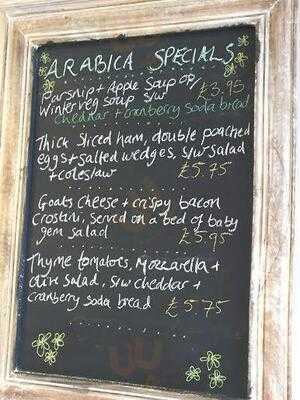 ARABICA SPECIALS
Parsnip + Apple Soup or/
Winter veg soup s/w £3.95
Cheddar + cranberry soda bread
Thick sliced ham, double poached
eggs + salted wedges, s/w salad
+ coleslaw £5.75
Goats cheese + crispy bacon
crostini, served on a bed of baby
gem salad £5.95
Thyme tomatoes, Mozzarella +
olive salad, s/w cheddar +
cranberry soda bread £5.75